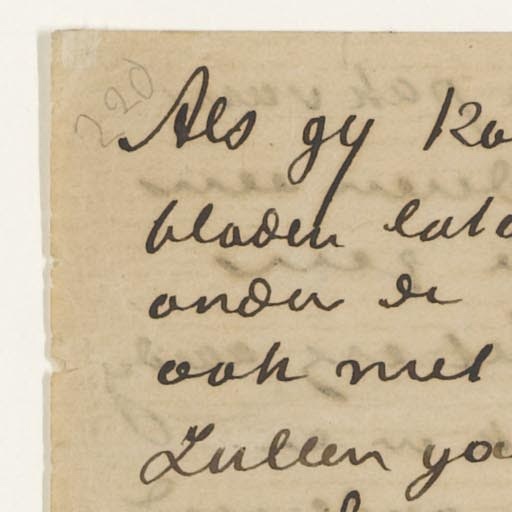 220
Als gy
bladen
onder de
ook met
Zullen